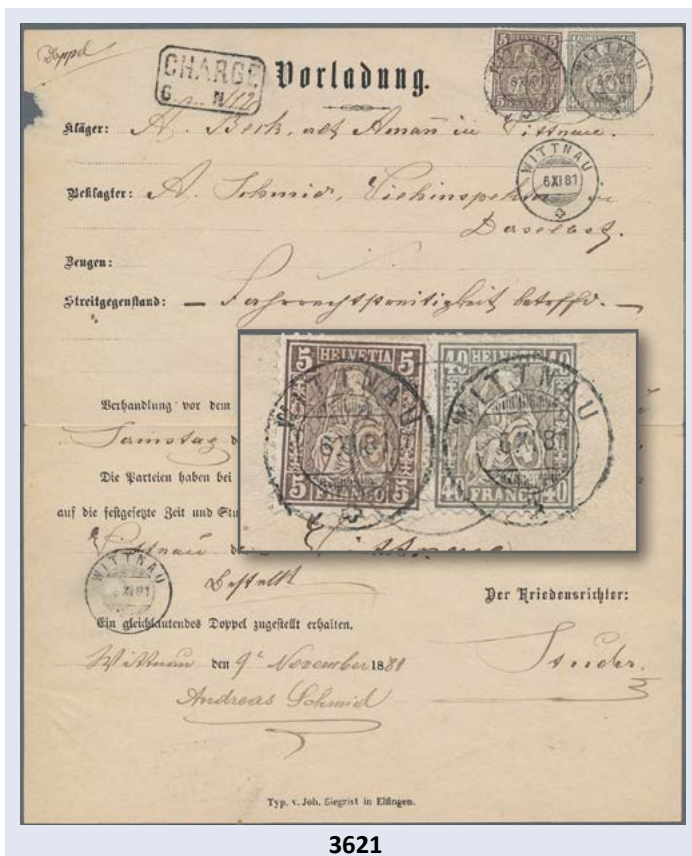 Doppel
CHARGÉ
G. N 112
Vorladung.
5 HELVETIA 5
5 FRANCO 5
40 HELVETIA 40
40 FRANCO 40
WITTNAU
6 XI 81
WITTNAU
6 XI 81
Kläger: A. Beck, alt Aman in Wittnau.
WITTNAU
6 XI 81
Beklagter: A. Schmid, Viehinspektor in
Daselbst.
Zeugen:
Streitgegenstand: — Fahrrechtstreitigkeit betrffd. —
5 HELVETIA 5
5 FRANCO 5
40 HELVETIA 40
40 FRANCO 40
WITTNAU
6 XI 81
WITTNAU
6 XI 81
Verhandlung vor dem
Samstag d
Die Parteien haben bei
auf die festgesetzte Zeit und Stu
Wittnau den
WITTNAU
6 XI 81
Bestellt
Der Friedensrichter:
Ein gleichlautendes Doppel zugestellt erhalten.
Wittnau den 9t November 1881
Studer.
Andreas Schmid
Typ. v. Joh. Siegrist in Elfingen.
3621